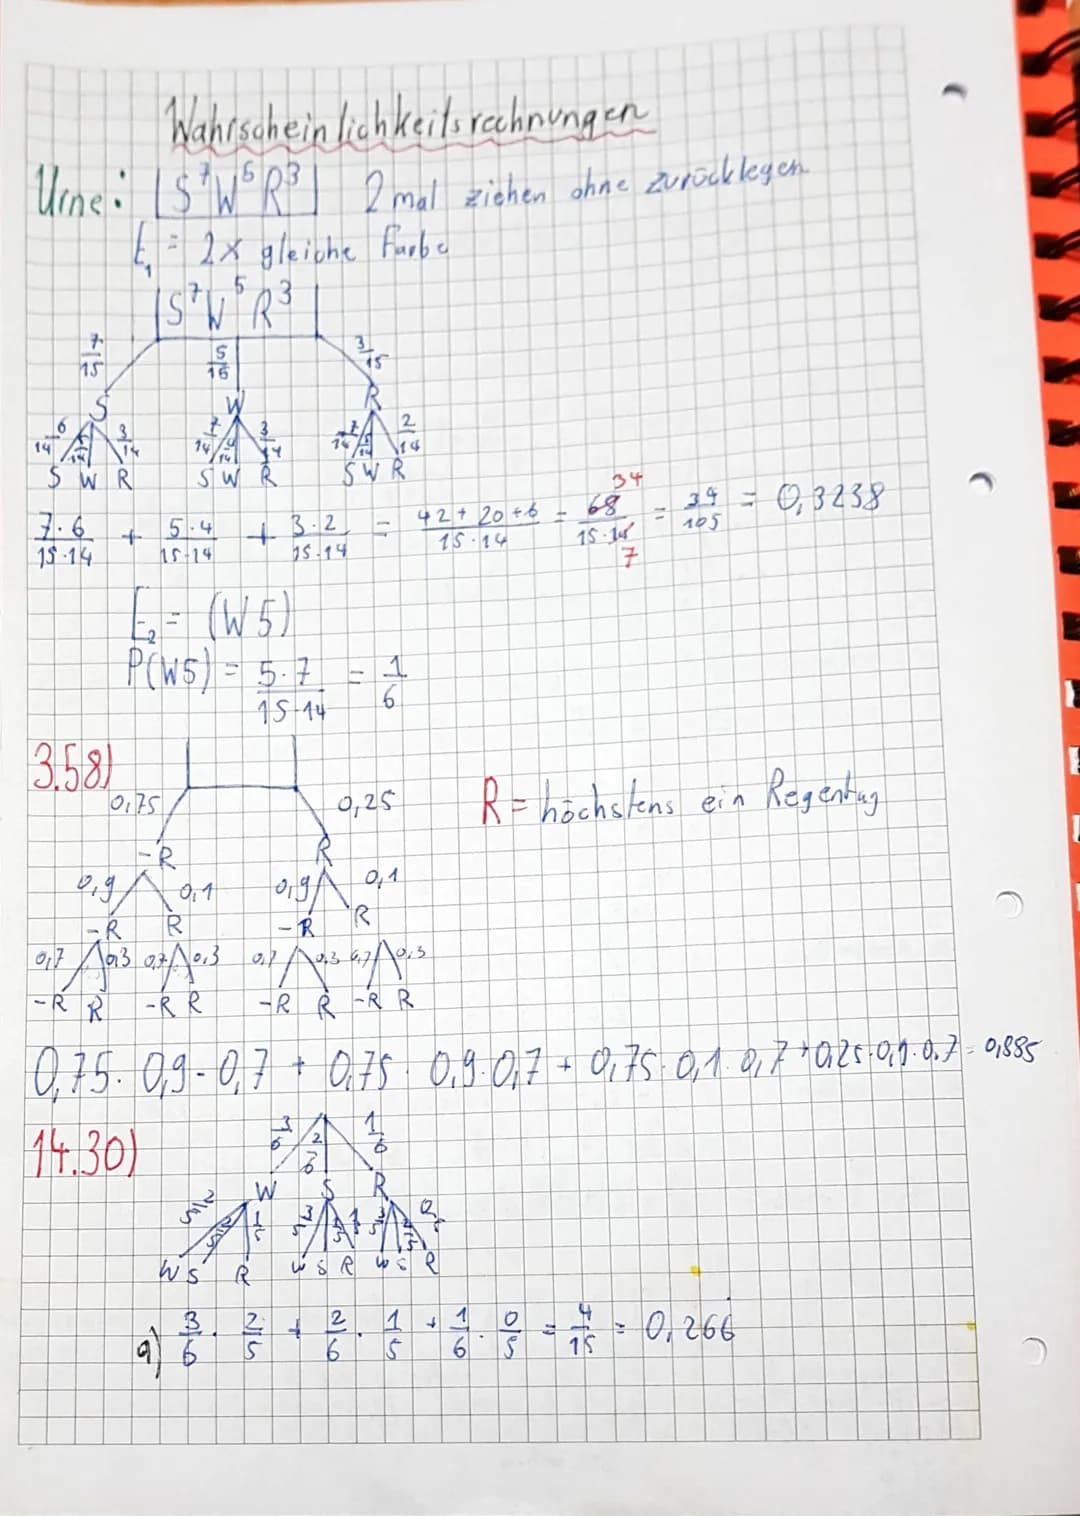 Wahrscheinlichkeitsrechnungen
Urne: |S⁷W⁵R³| 2mal ziehen ohne zurücklegen
E₁ = 2x gleiche Farbe
|S⁷W⁵R³|
7/15 5/15 3/15
S W R
6/14 3/14 7/14 4/14 3/14 7/14 5/14 2/14
S W R S W R S W R
34
7·6/15·14 + 5·4/15·14 + 3·2/15·14 = 42+20+6/15·14 = 68/15·14 = 34/105 = 0,3238
7
E₂ = (W5)
P(W5) = 5·7/15·14 = 1/6
3.58)
0,75 0,25 R = höchstens ein Regentag
-R R
0,9 0,1 0,9 0,1
-R R -R R
0,7 0,3 0,7 0,3 0,7 0,3 0,7 0,3
-R R -R R -R R -R R
0,75·0,9·0,7 + 0,75·0,9·0,7 + 0,75·0,1·0,7 + 0,25·0,1·0,7 = 0,885
14.30)
3/6 2/6 1/6
W S R
2/5 2/5 1/5 3/5 1/5 1/5 3/5 2/5 0/5
W S R W S R W S R
a) 3/6 · 2/5 + 2/6 · 1/5 + 1/6 · 0/5 = 4/15 = 0,266